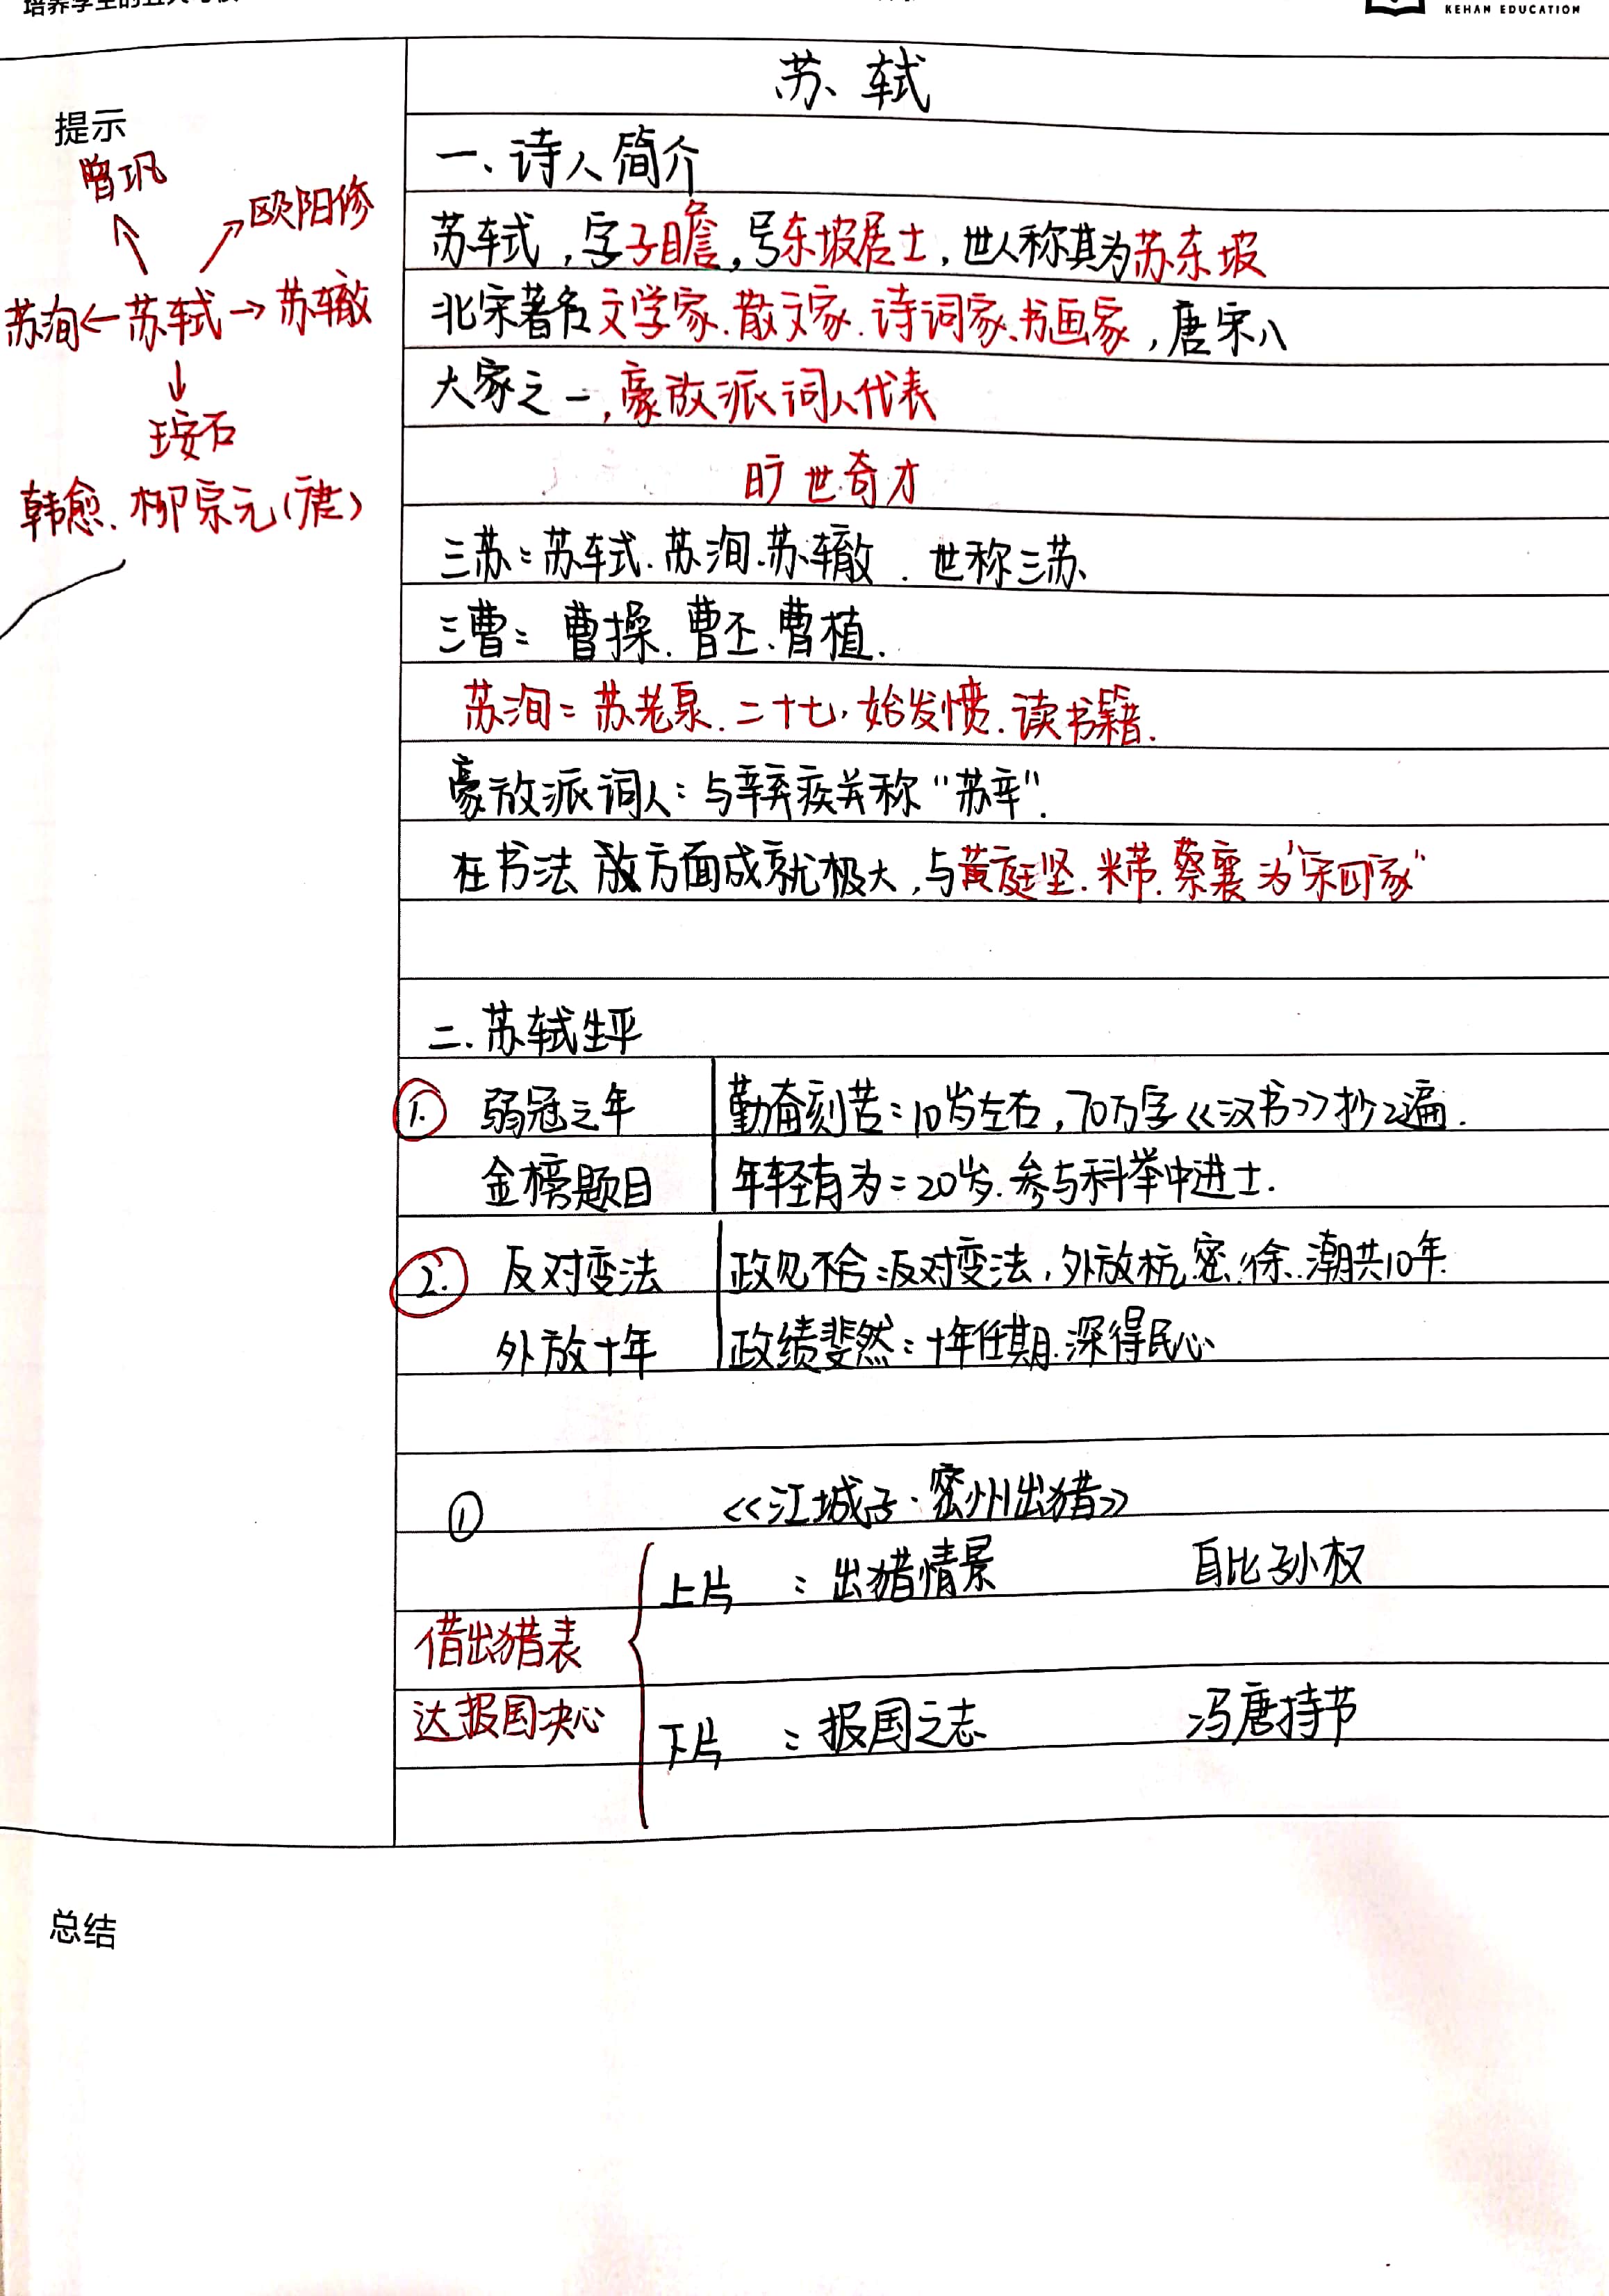 KEHAN EDUCATION
苏轼
提示
曾巩
欧阳修
苏洵←苏轼→苏辙
王安石
韩愈、柳宗元(唐)
一、诗人简介
苏轼，字子瞻，号东坡居士，世人称其为苏东坡
北宋著名文学家、散文家、诗词家、书画家，唐宋八
大家之一，豪放派词人代表
旷世奇才
三苏：苏轼、苏洵、苏辙．世称三苏、
三曹：曹操、曹丕、曹植．
苏洵：苏老泉．二十七，始发愤．读书籍．
豪放派词人：与辛弃疾并称“苏辛”．
在书法 放方面成就极大，与黄庭坚．米芾．蔡襄为“宋四家”
二．苏轼生平
1. 弱冠之年 勤奋刻苦：10岁左右，70万字《汉书》抄2遍．
金榜题目 年轻有为：20岁．参与科举中进士．
2. 反对变法 政见不合：反对变法，外放杭．密．徐．潮共10年．
外放十年 政绩斐然：十年任期．深得民心
① 《江城子·密州出猎》
上片：出猎情景 自比孙权
借出猎表
达报国决心
下片：报国之志 冯唐持节
总结